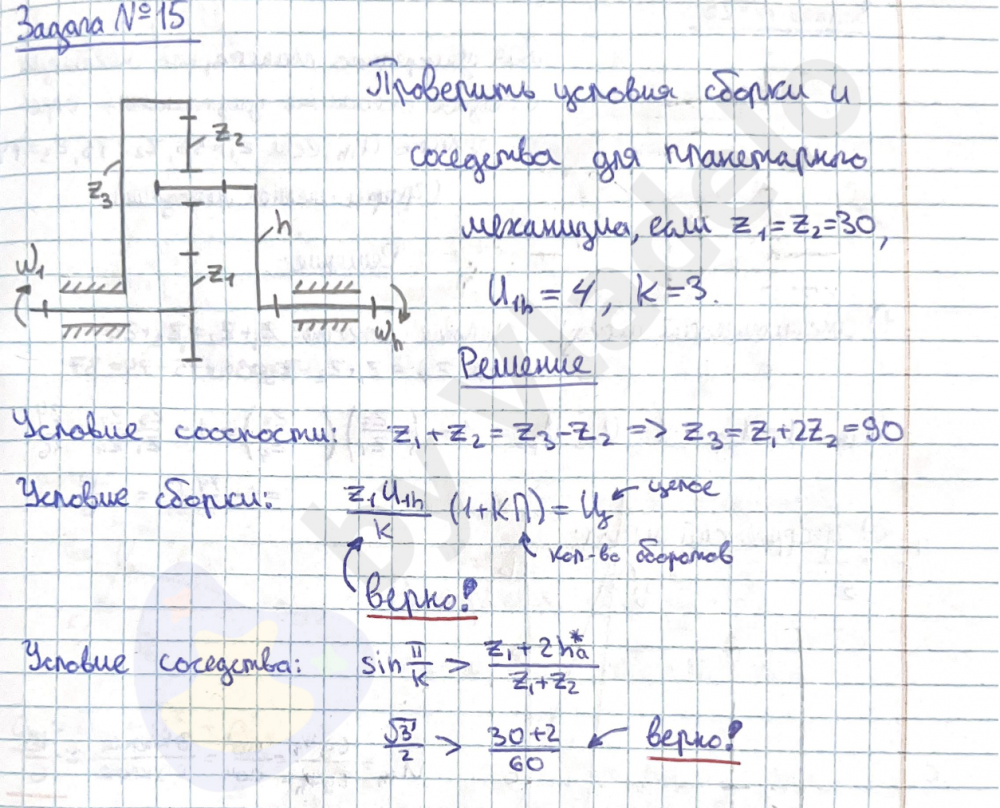 Задача №15
Проверить условия сборки и
соседства для планетарного
механизма, если z₁=z₂=30,
U₁ₕ = 4, k=3.
z₂
z₃
h
ω₁
z₁
ωₕ
Решение
Условие соосности: z₁+z₂ = z₃-z₂ => z₃=z₁+2z₂=90
Условие сборки: z₁U₁ₕ/k (1+kП) = Ц ← целое
кол-во оборотов
верно!
Условие соседства: sin π/k > (z₁+2hₐ*)/(z₁+z₂)
√3/2 > (30+2)/60 ← верно!
by Vladelo